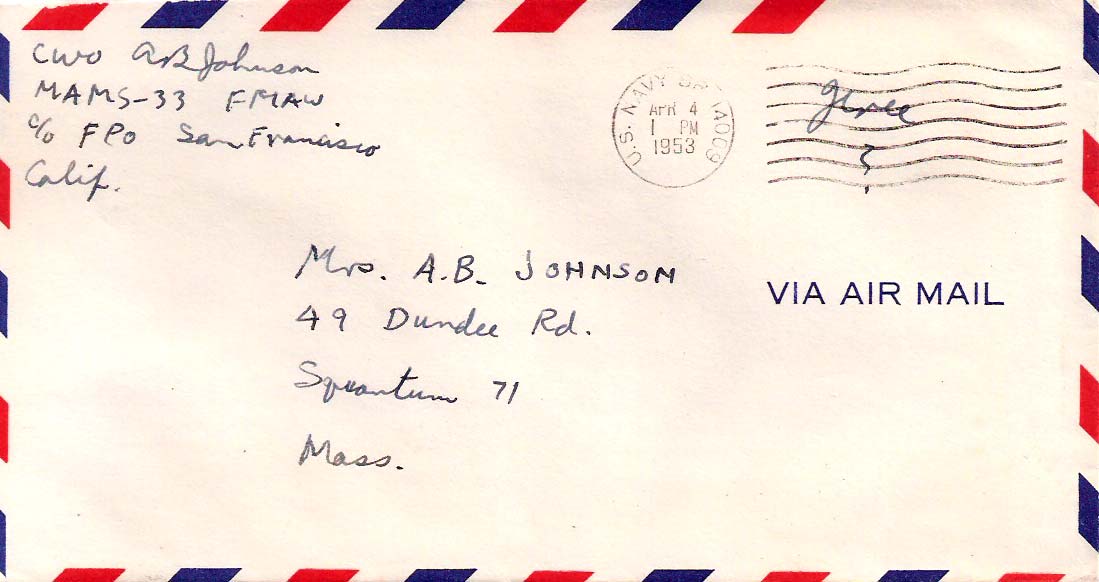 CWO A B Johnson
MAMS-33 FMAW
c/o FPO San Francisco
Calif.
U.S. NAVY 14009
APR 4
1 PM
1953
Free
Mrs. A.B. JOHNSON
49 Dundee Rd.
Squantum 71
Mass.
VIA AIR MAIL